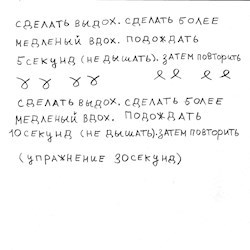 СДЕЛАТЬ ВЫДОХ. СДЕЛАТЬ БОЛЕЕ
МЕДЛЕНЫЙ ВДОХ. ПОДОЖДАТЬ
5 СЕКУНД (НЕ ДЫШАТЬ). ЗАТЕМ ПОВТОРИТЬ
СДЕЛАТЬ ВЫДОХ. СДЕЛАТЬ БОЛЕЕ
МЕДЛЕНЫЙ ВДОХ. ПОДОЖДАТЬ
10 СЕКУНД (НЕ ДЫШАТЬ). ЗАТЕМ ПОВТОРИТЬ
(УПРАЖНЕНИЕ 30 СЕКУНД)